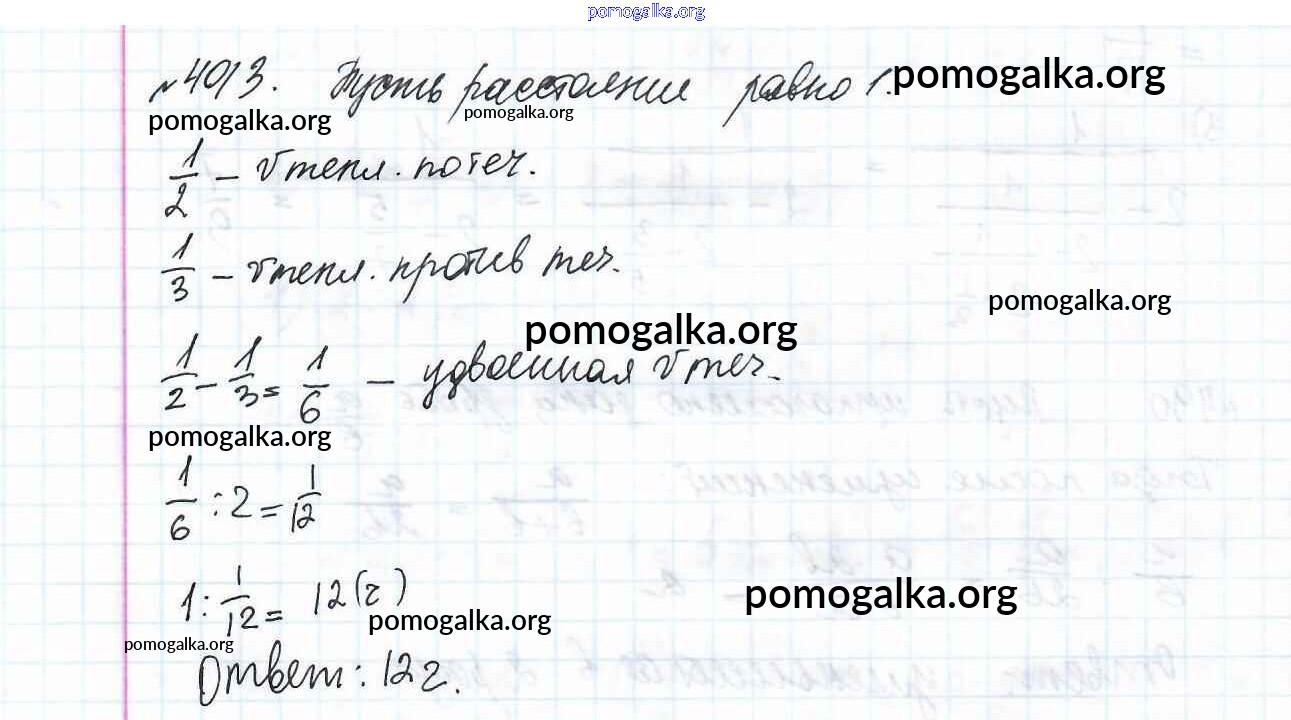 pomogalka.org
№4013. Пусть расстояние равно 1. pomogalka.org
pomogalka.org pomogalka.org
1/2 – v тепл. по теч.
1/3 – v тепл. против теч.
pomogalka.org
pomogalka.org
1/2 – 1/3 = 1/6 – удвоенная v теч.
pomogalka.org
1/6 : 2 = 1/12
1 : 1/12 = 12 (г) pomogalka.org
pomogalka.org
pomogalka.org
Ответ: 12 г.